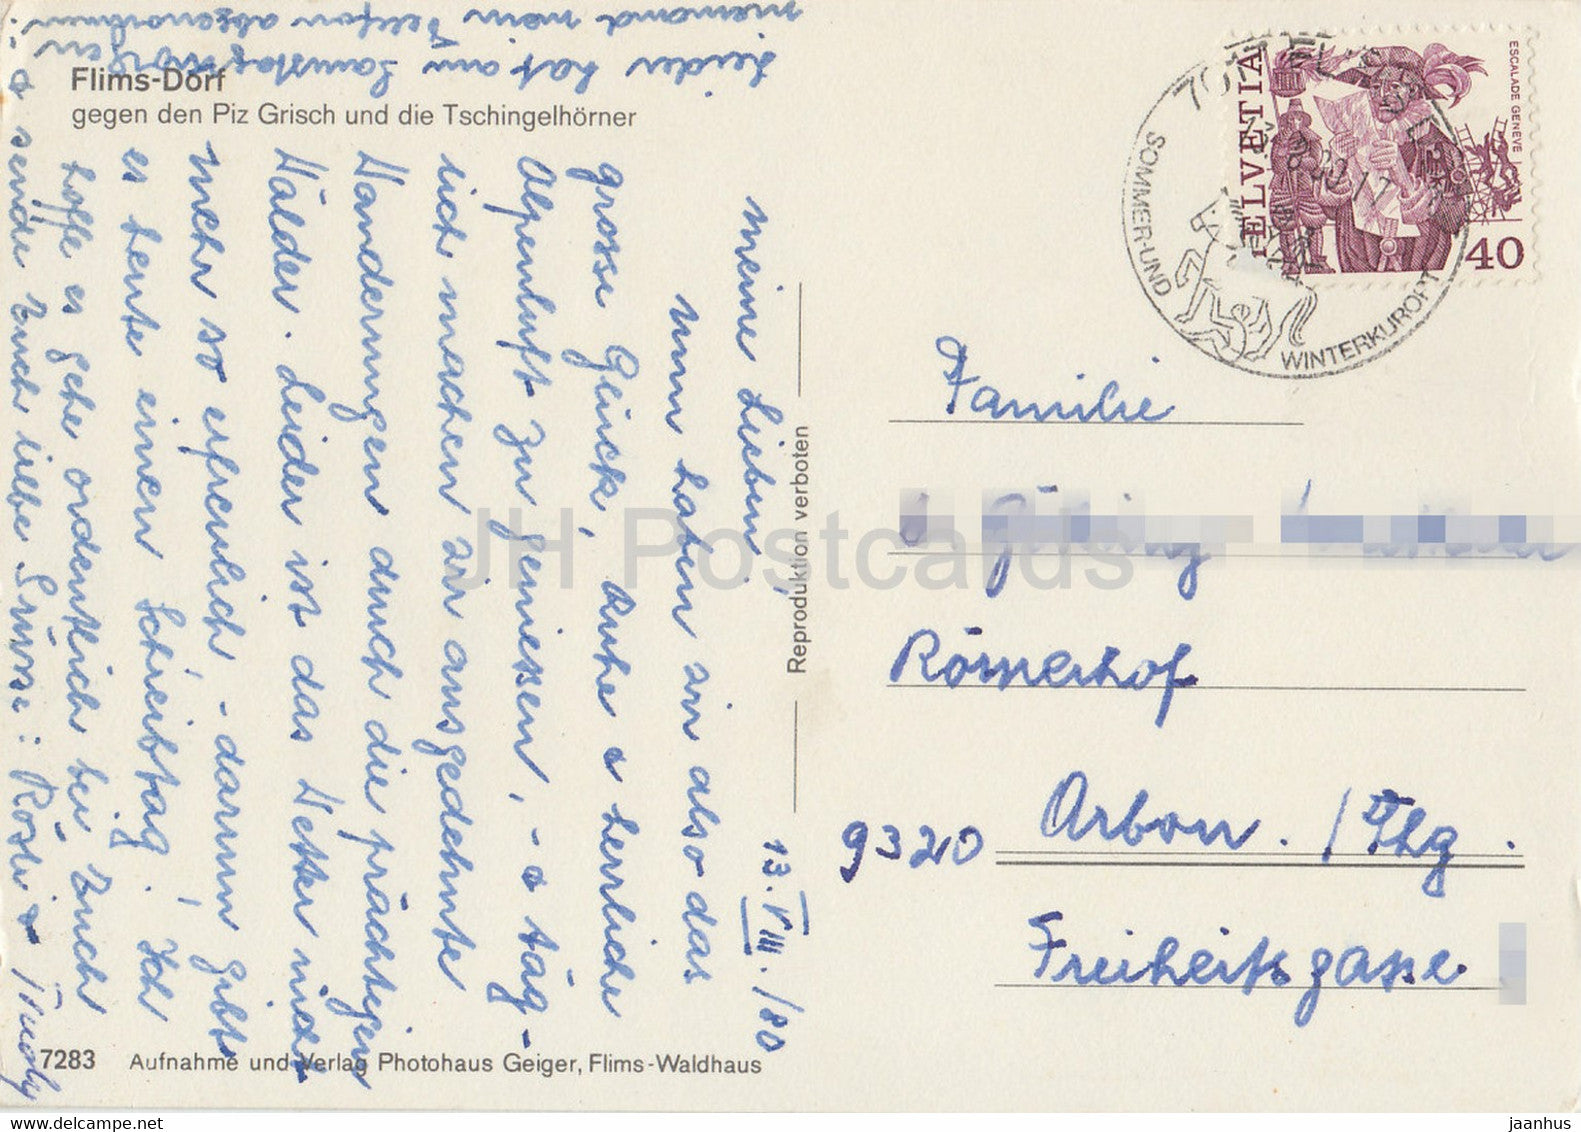 Flims-Dorf
gegen den Piz Grisch und die Tschingelhörner
13. VIII. / 80
Meine Lieben,
Nun haben wir also das
grosse Glück, Ruhe & herrliche
Alpenluft zu geniessen, - & täg-
lich machen wir ausgedehnte
Wanderungen durch die prächtigen
Wälder. Leider ist das Wetter nicht
mehr so erfreulich - darum gibt
es heute einen Schreibtag. Ich
hoffe es gehe ordentlich bei Euch
& sende Euch liebe Grüsse: Rösli & Trudy
Leider hat am Samstag morgen
niemand mein Telefon abgenommen!
7283 Aufnahme und Verlag Photohaus Geiger, Flims-Waldhaus
Reproduktion verboten
HELVETIA
ESCALADE GENEVE
40
SOMMER-UND
WINTERKURORT
Familie
Römerhof
9320 Arbon. / Thg.
Freiheitsgasse
JH Postcards
jaanhus